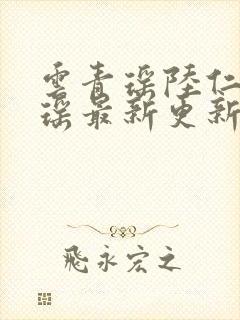 雲青瑤陸仁
瑤最新更新
飛永宏之